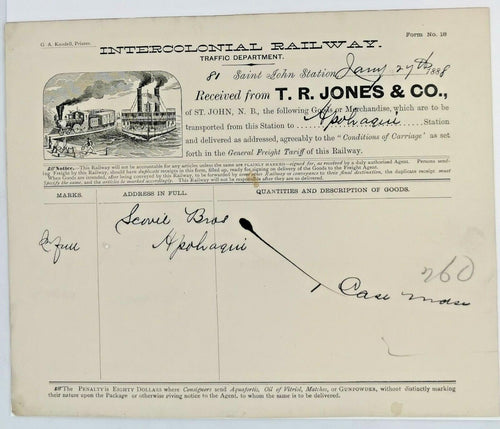 G. A. Knodell, Printer.
Form No. 18
INTERCOLONIAL RAILWAY.
TRAFFIC DEPARTMENT.
81 Saint John Station, Jany 27th 1888
Received from T. R. JONES & CO.,
of ST. JOHN, N. B., the following Goods or Merchandise, which are to be
transported from this Station to Apohaqui Station
and delivered as addressed, agreeably to the "Conditions of Carriage" as set
forth in the General Freight Tariff of this Railway.
Notice.—This Railway will not be accountable for any articles unless the same are PLAINLY MARKED—signed for, as received by a duly authorized Agent. Persons sending
Freight by this Railway, should have duplicate receipts in this form, filled up, ready for signing on delivery of the Goods to the Freight Agent.
When Goods are intended, after being conveyed by this Railway, to be forwarded by some other Railway or conveyance to their final destination, the duplicate receipt must
specify the same, and the articles be marked accordingly. This Railway will not be responsible after they are delivered.
MARKS. ADDRESS IN FULL. QUANTITIES AND DESCRIPTION OF GOODS.
In full Scovil Bros
Apohaqui
260
1 Case Mdse
The PENALTY is EIGHTY DOLLARS where Consigners send Aquafortis, Oil of Vitriol, Matches, or GUNPOWDER, without distinctly marking
their nature upon the Package or otherwise giving notice to the Agent, to whom the same is to be delivered.